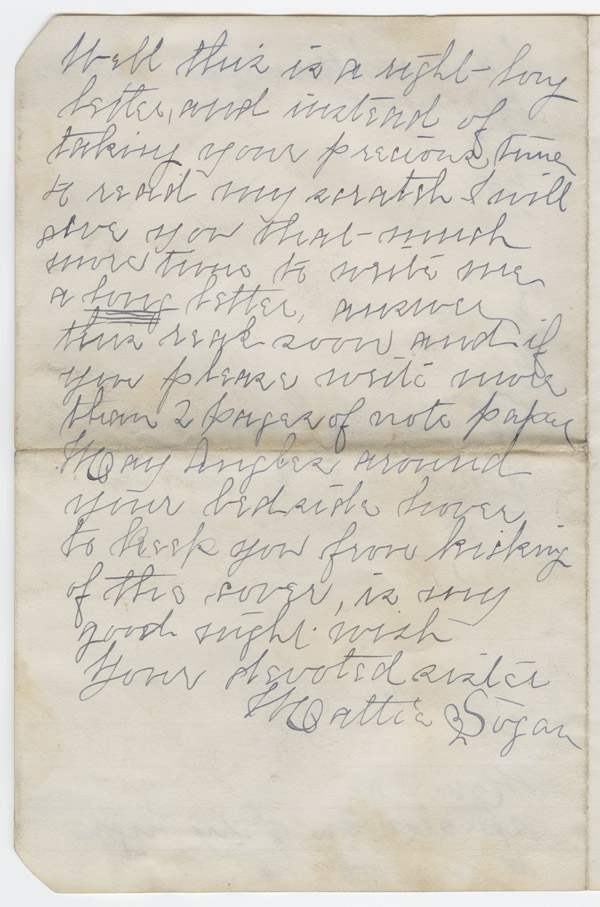 Well this is a right long
letter, and instead of
taking your precious time
to read my scratch I will
give you that much
more time to write me
a long letter, answer
this real soon and if
you please write more
than 2 pages of note paper
May Angles around
your bedside hover
to keep you from kicking
of the cover, is my
good night wish
Your devoted sister
Mattie Logan